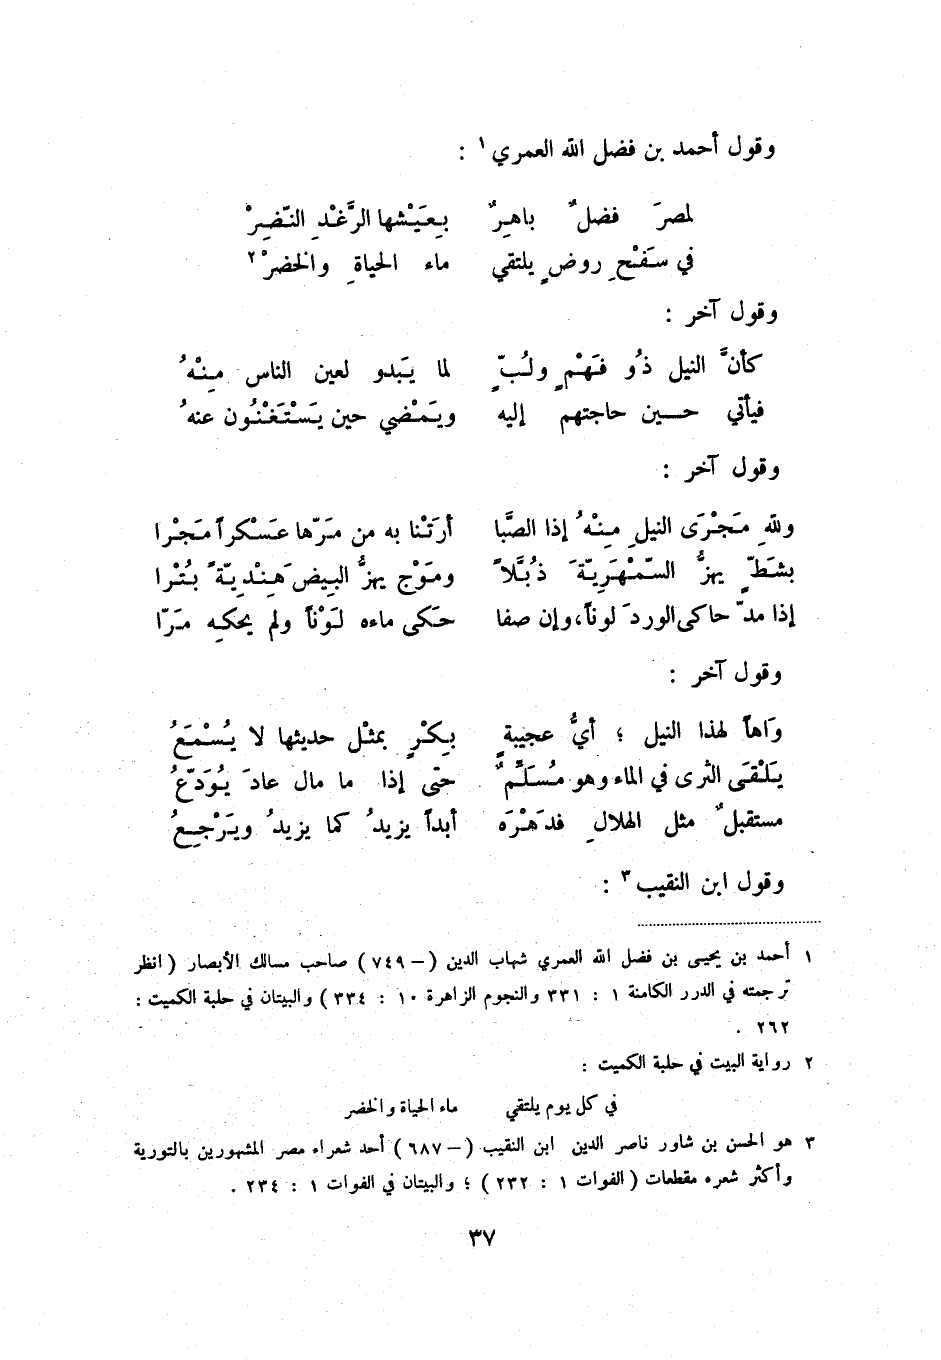 وقول أحمد بن فضل الله العمري ١ :
لمصرَ فضلٌ باهِرٌ بِعَيْشها الرَّغْدِ النّضِرْ
في سَفْحِ روضٍ يلتقي ماء الحياةِ والخضرْ ٢
وقول آخر :
كأنَّ النيل ذُو فَهْمٍ ولُبٍّ لما يَبدو لعين الناس مِنْهُ
فيأتي حين حاجتهم إليه ويَمْضي حين يَسْتَغْنُون عنهُ
وقول آخر :
وللهِ مَجْرَى النيلِ مِنْهُ إذا الصَّبا أرَتْنا به من مَرّها عَسْكراً مَجْرا
بشَطٍّ يهزُّ السّمْهَرِيّةَ ذُبَّلاً ومَوْج يهزُّ البِيضَ هِنْدِيّةً بُتْرا
إذا مدّ حاكى الوردَ لوناً، وإن صفا حَكى ماءه لَوْناً ولم يحكِه مَرّا
وقول آخر :
وَاهاً لهذا النيل ؛ أيُّ عجيبةٍ بِكْرٍ بمثْل حديثها لا يُسْمَعُ
يَلْقَى الثرى في الماء وهو مُسَلِّمٌ حتّى إذا ما مال عادَ يُوَدّعُ
مستقبلٌ مثل الهلالِ فدَهْرَه أبداً يزيدُ كما يزيدُ ويَرْجِعُ
وقول ابن النقيب ٣ :
١ أحمد بن يحيى بن فضل الله العمري شهاب الدين (– ٧٤٩) صاحب مسالك الأبصار (انظر
ترجمته في الدرر الكامنة ١ : ٣٣١ والنجوم الزاهرة ١٠ : ٣٣٤) والبيتان في حلبة الكميت :
٢٦٢ .
٢ رواية البيت في حلبة الكميت :
في كل يوم يلتقي ماء الحياة والخضر
٣ هو الحسن بن شاور ناصر الدين ابن النقيب (– ٦٨٧) أحد شعراء مصر المشهورين بالتورية
وأكثر شعره مقطعات (الفوات ١ : ٢٣٢) ؛ والبيتان في الفوات ١ : ٢٣٤ .
٣٧